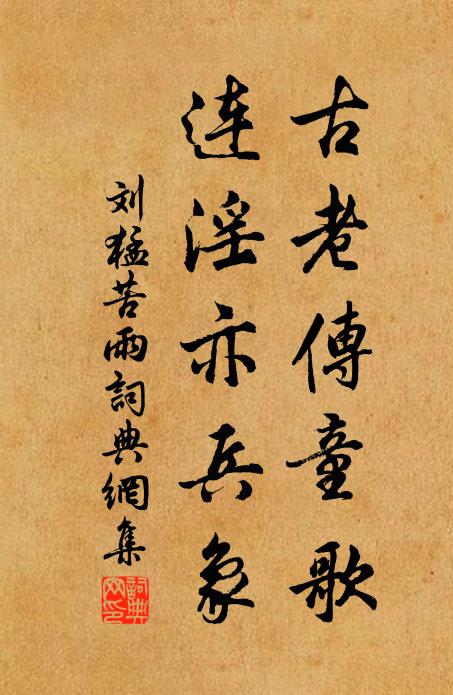 古老傳童歌
連淫亦兵象
刘猛苦雨詞典網集
詞典
网印